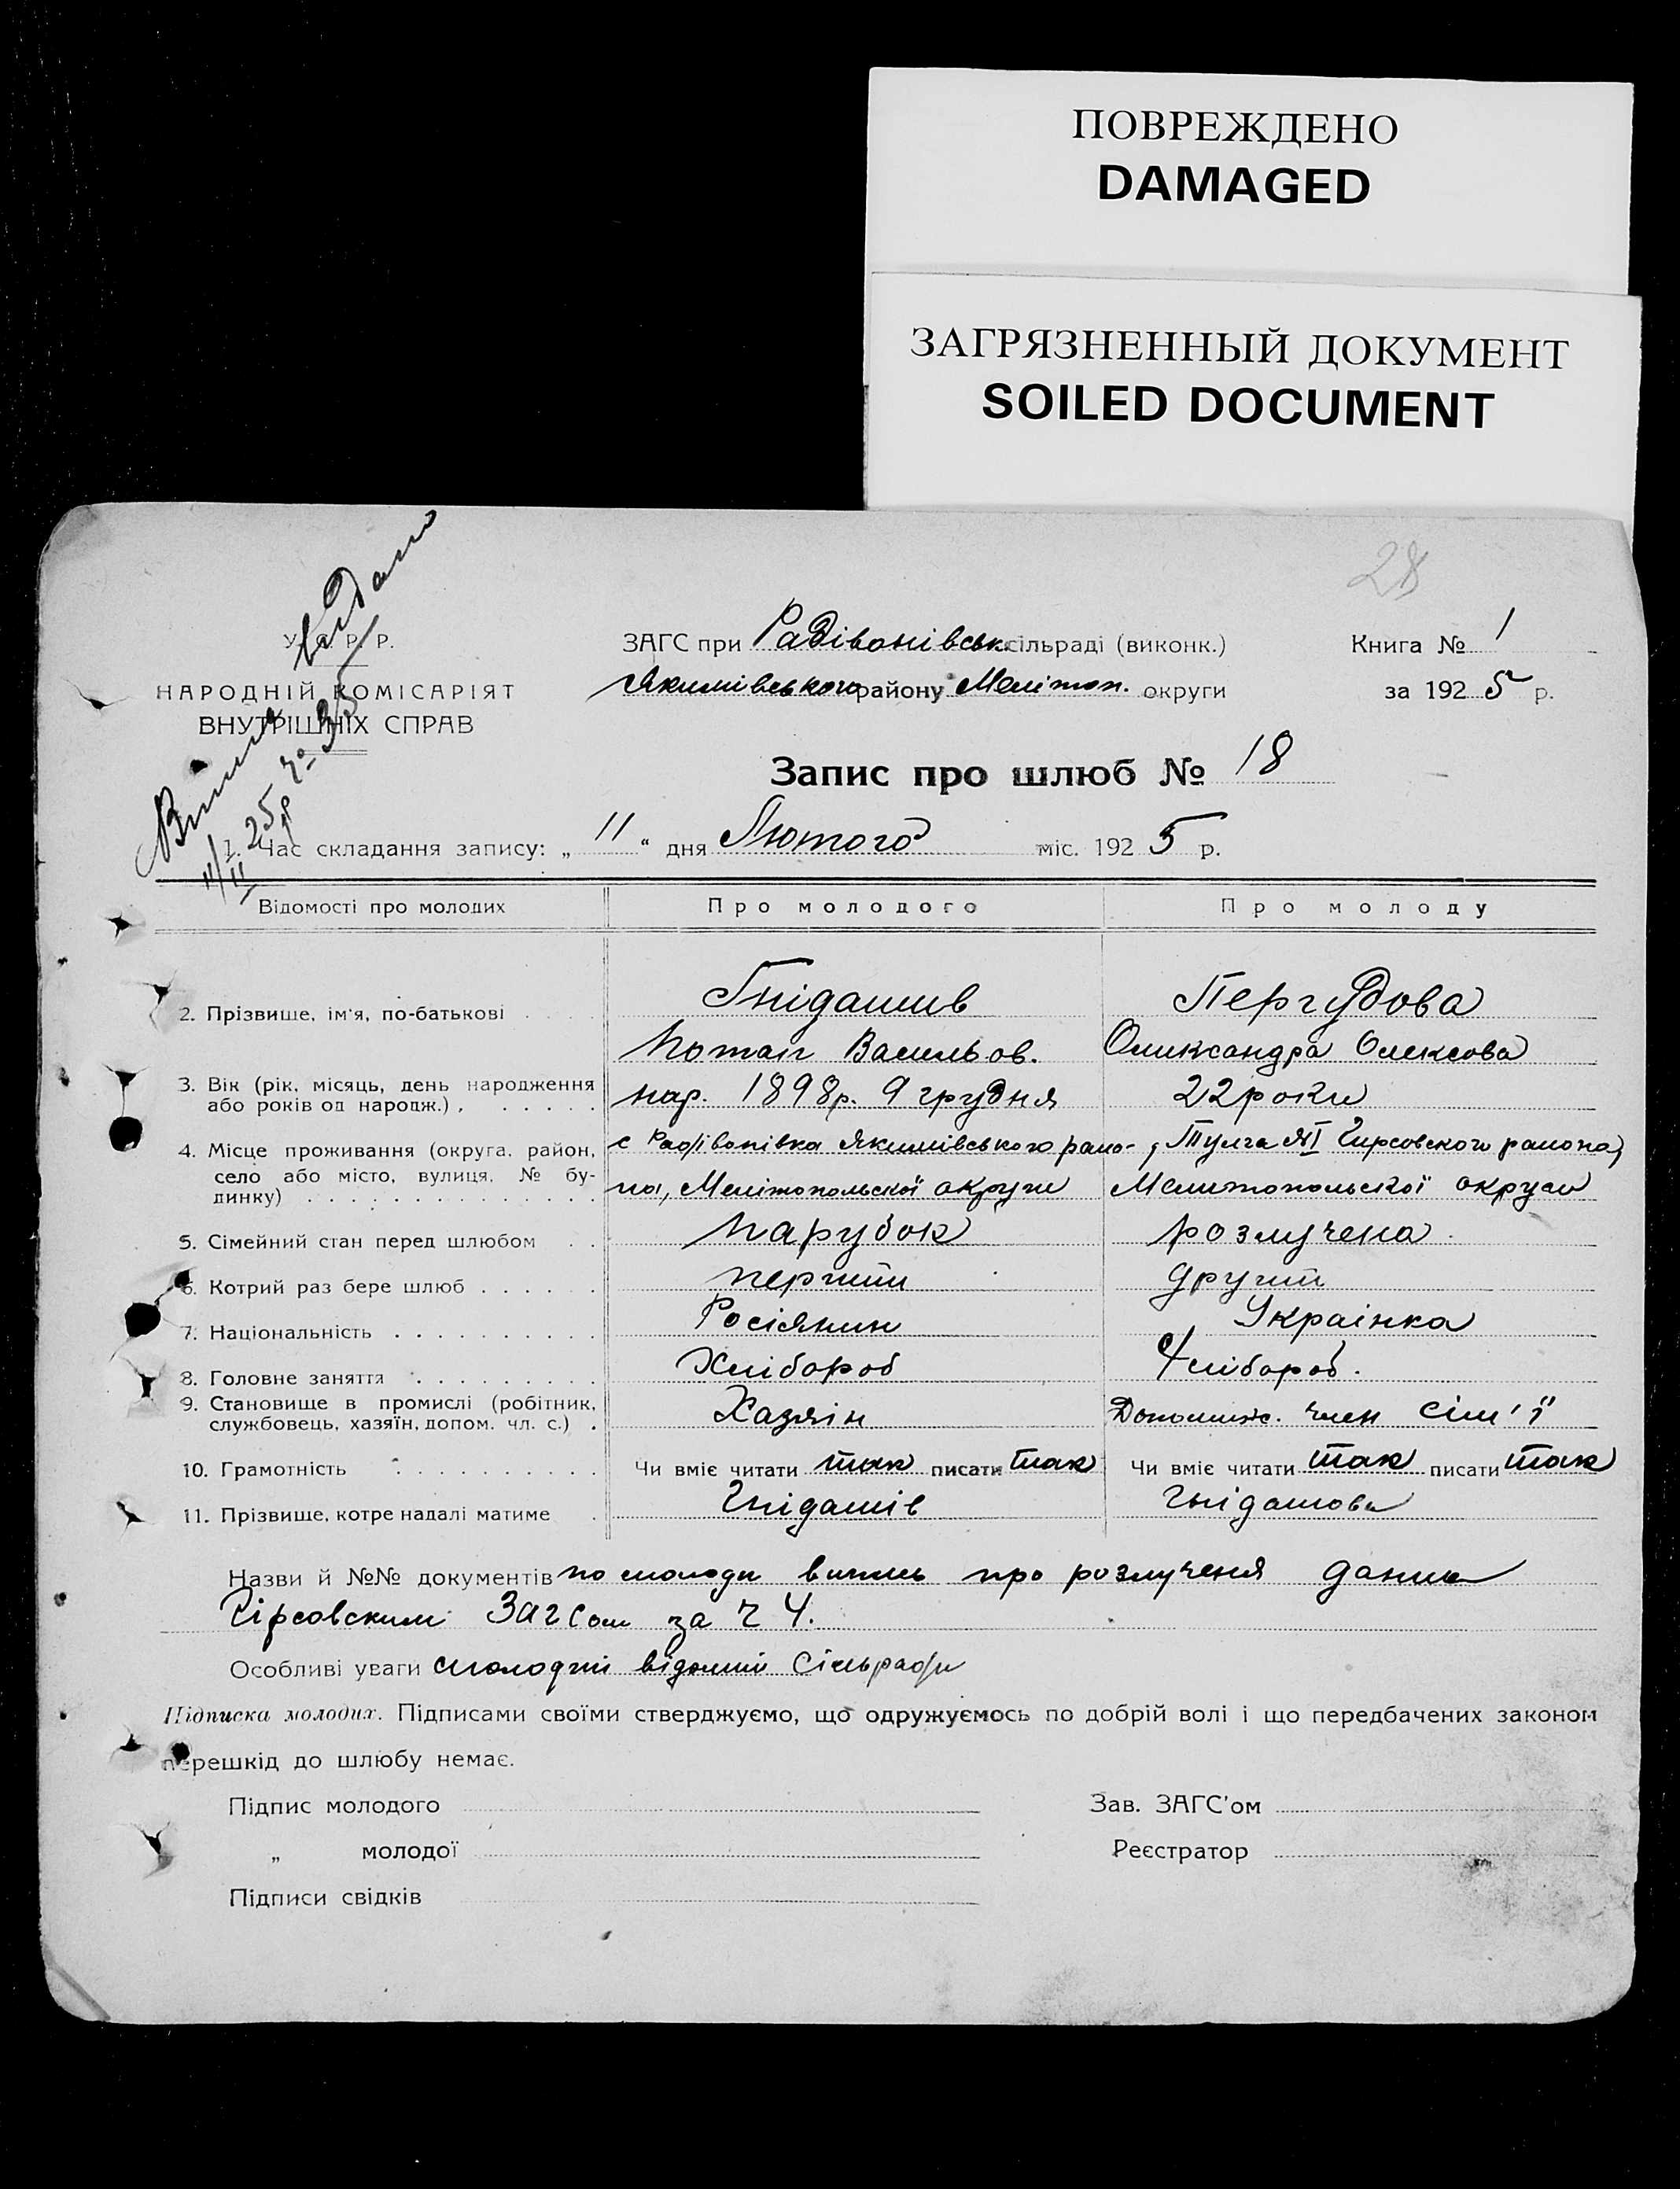 ПОВРЕЖДЕНО
DAMAGED
ЗАГРЯЗНЕННЫЙ ДОКУМЕНТ
SOILED DOCUMENT
28
У. С. Р. Р.
НАРОДНІЙ КОМІСАРІЯТ
ВНУТРІШНІХ СПРАВ
видано
ЗАГС при Радівонівськ. сільраді (виконк.)
Якимівського району Мелітоп. округи
Книга № 1
за 1925 р.
Запис про шлюб № 18
1. Час складання запису: „ 11 “ дня Лютого міс. 1925 р.
Відомості про молодих Про молодого Про молоду
2. Прізвище, ім'я, по-батькові Гнідашив Пергудова
Потап Васильов. Олександра Олексова
3. Вік (рік, місяць, день народження або років од народж.) нар. 1898р. 9 грудня 22 роки
4. Місце проживання (округа, район, с Радівонівка Якимівського райо- Гирсовского района,
село або місто, вулиця, № бу-
динку) на, Мелітопольскої округи Мелитопольскої округи
5. Сімейний стан перед шлюбом парубок розлучена
6. Котрий раз бере шлюб перший другий
7. Національність Росіянин Украінка
8. Головне заняття Хлібороб Хлібороб.
9. Становище в промислі (робітник,
службовець, хазяїн, допом. чл. с.) Хазяін Допоміж. член сім'ї
10. Грамотність Чи вміє читати так писати так Чи вміє читати так писати так
11. Прізвище, котре надалі матиме Гнідашів Гнідашова
Назви й №№ документів по молоди випись про розлученя данна
Гірсовским Загсом за ч 4.
Особливі уваги молодий відомий Сільради
Підписка молодих. Підписами своїми стверджуємо, що одружуємось по добрій волі і що передбачених законом
перешкід до шлюбу немає.
Підпис молодого Зав. ЗАГС'ом
„ молодої Реєстратор
Підписи свідків